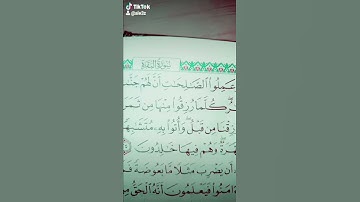 TikTok
سُورَةُ البَقَرَةِ
عَمِلُوا۟ ٱلصَّٰلِحَٰتِ أَنَّ لَهُمْ جَنَّٰ
كُلَّمَا رُزِقُوا۟ مِنْهَا مِن ثَمَرَ
رُزِقْنَا مِن قَبْلُ وَأُتُوا۟ بِهِۦ مُتَشَٰبِهًا
وَهُمْ فِيهَا خَٰلِدُونَ
أَن يَضْرِبَ مَثَلًا مَّا بَعُوضَةً فَ
ءَامَنُوا۟ فَيَعْلَمُونَ أَنَّهُ ٱلْحَقُّ مِن